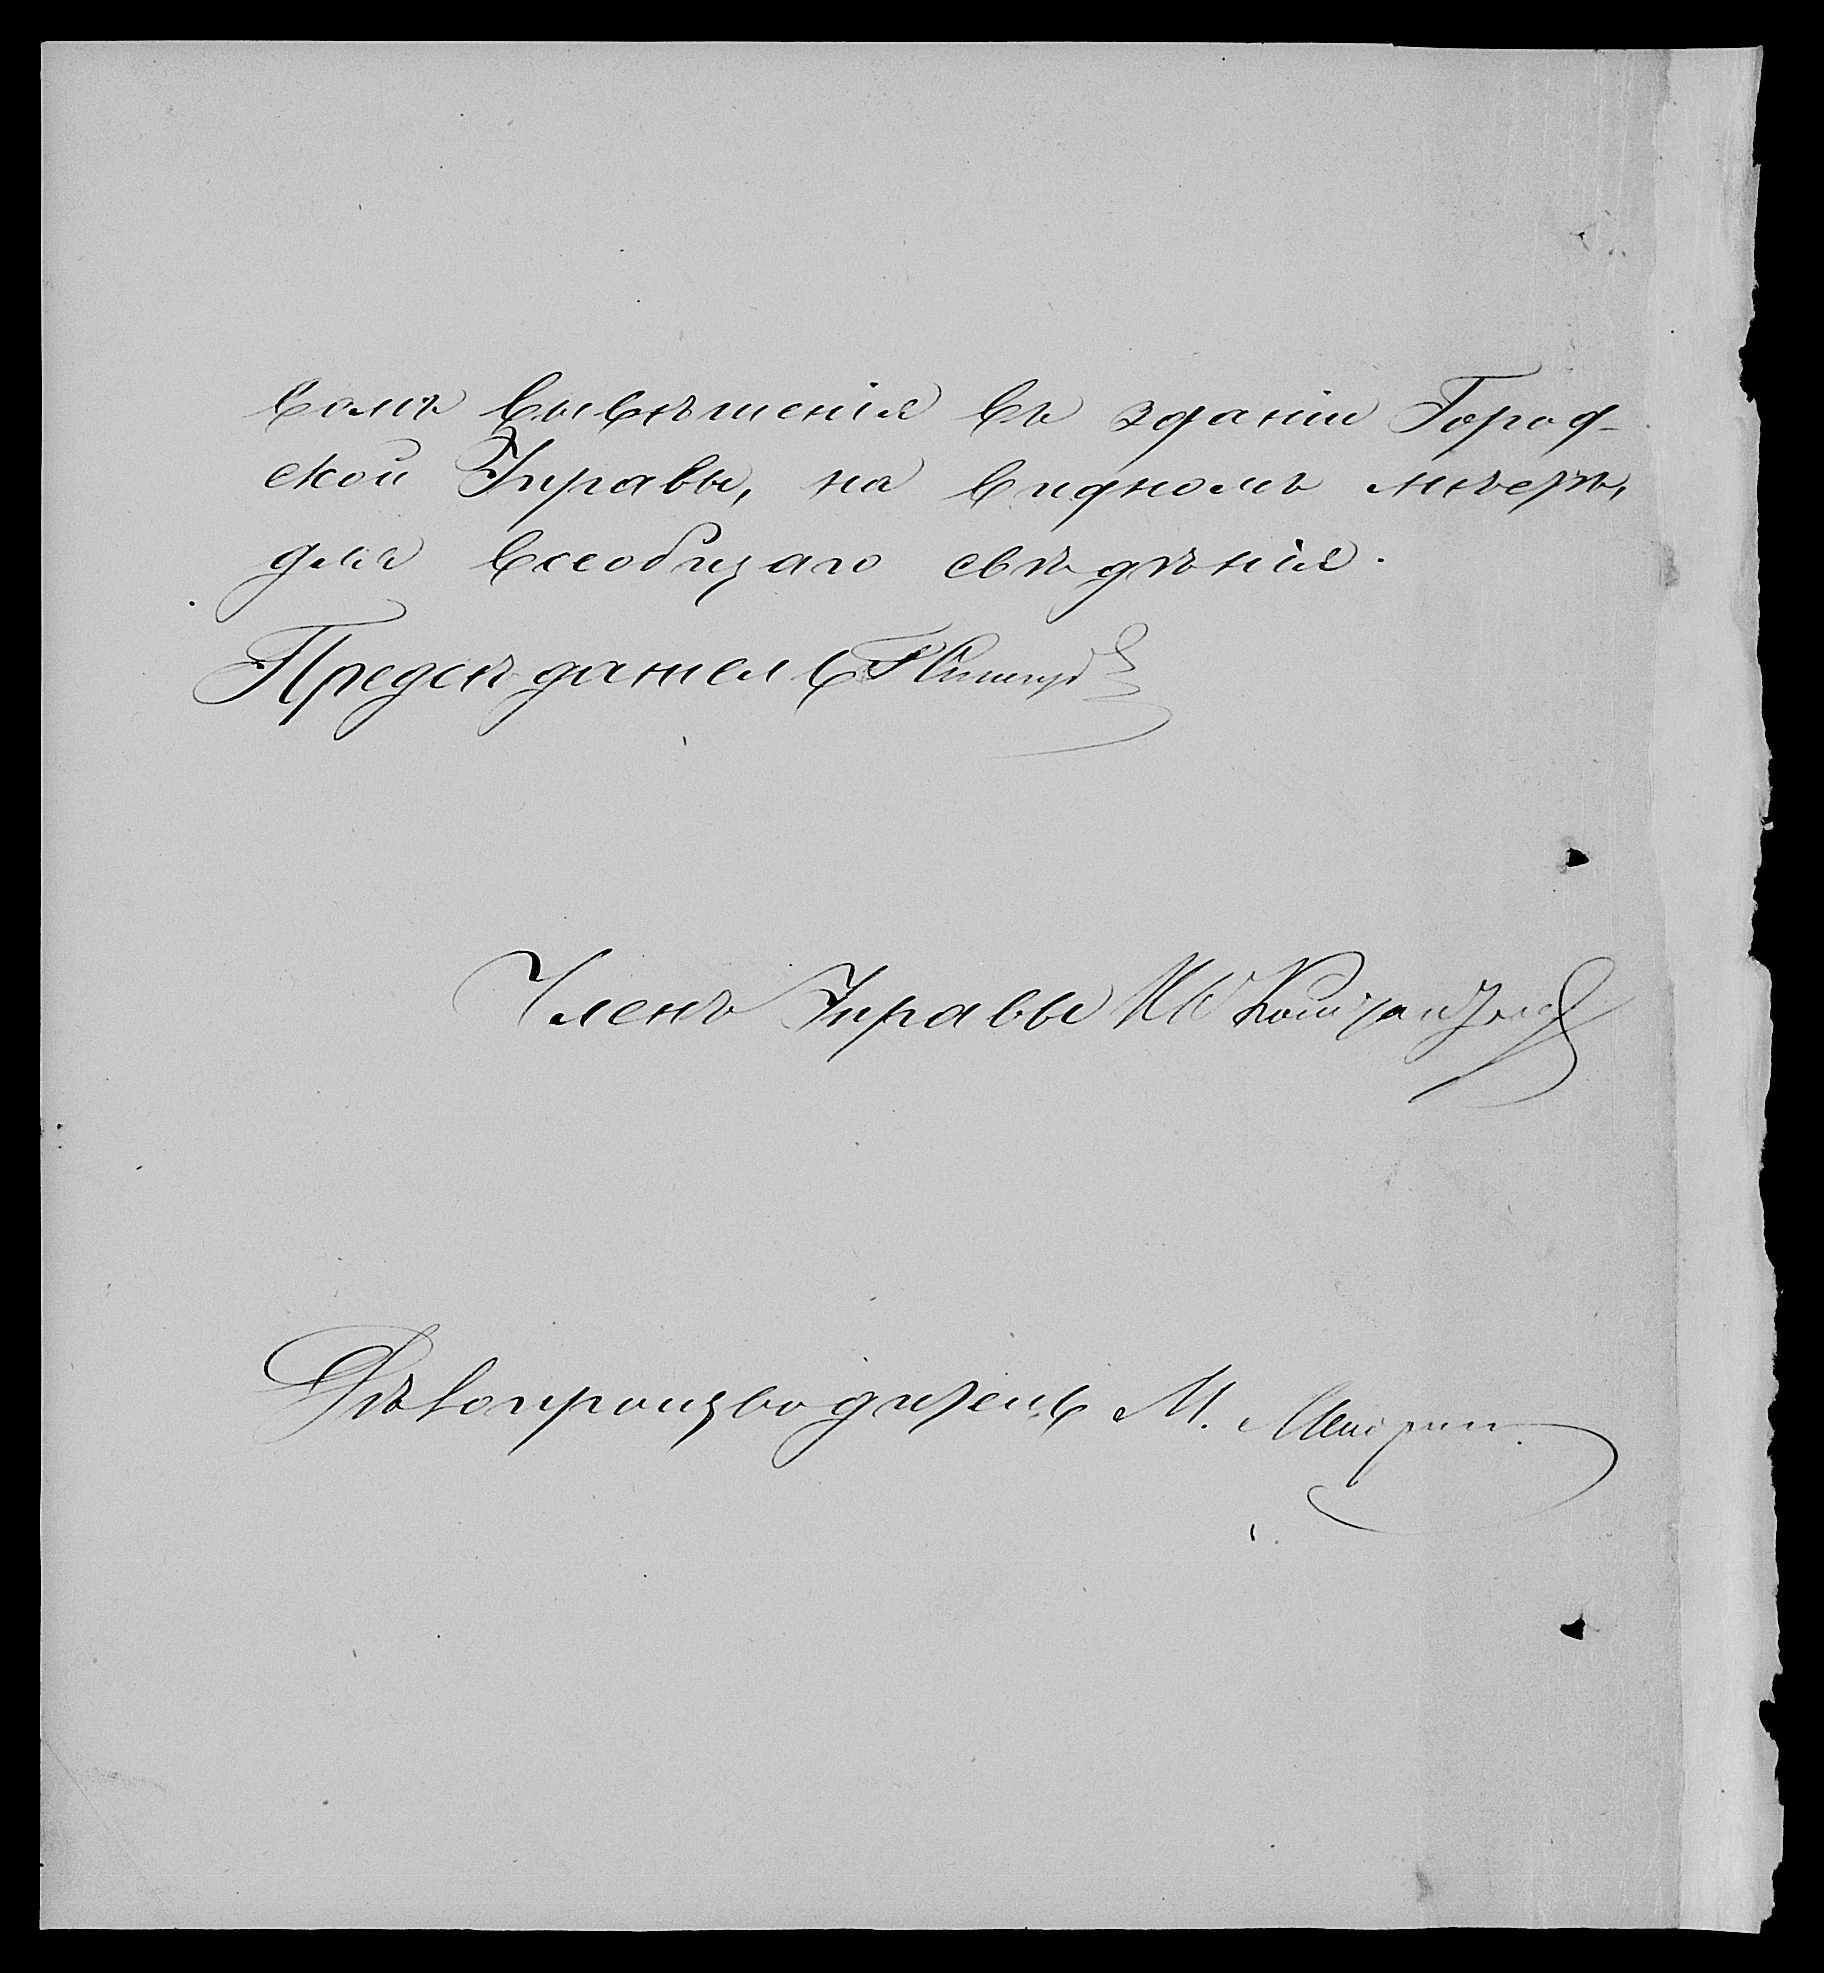 вомъ вывѣшенія въ зданіи Город-
ской Управы, на видномъ мѣстѣ,
для всеобщаго свѣдѣнія.
Предсѣдатель
Членъ Управы
Дѣлопроизводитель М.